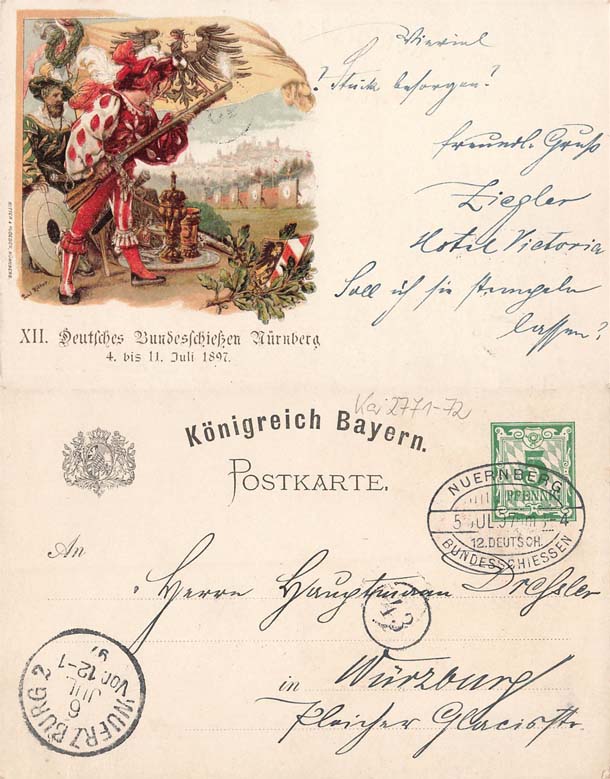 Vieviel
? Stück besorgen?
freundl. Gruß
Ziegler
Hotel Victoria
Soll ich sie stempeln
lassen?
XII. Deutsches Bundesschießen Nürnberg
4. bis 11. Juli 1897.
Kai 2771-72
Königreich Bayern.
POSTKARTE.
5
PFENNIG
NUERNBERG
5 JUL 97
4
12.DEUTSCH.
BUNDESSCHIESSEN
An
Herrn Hauptmann Drechsler
43
in Würzburg
Pleicher Glacisstr.
WUERZBURG 2
6
JUL
Vor.12-1
97